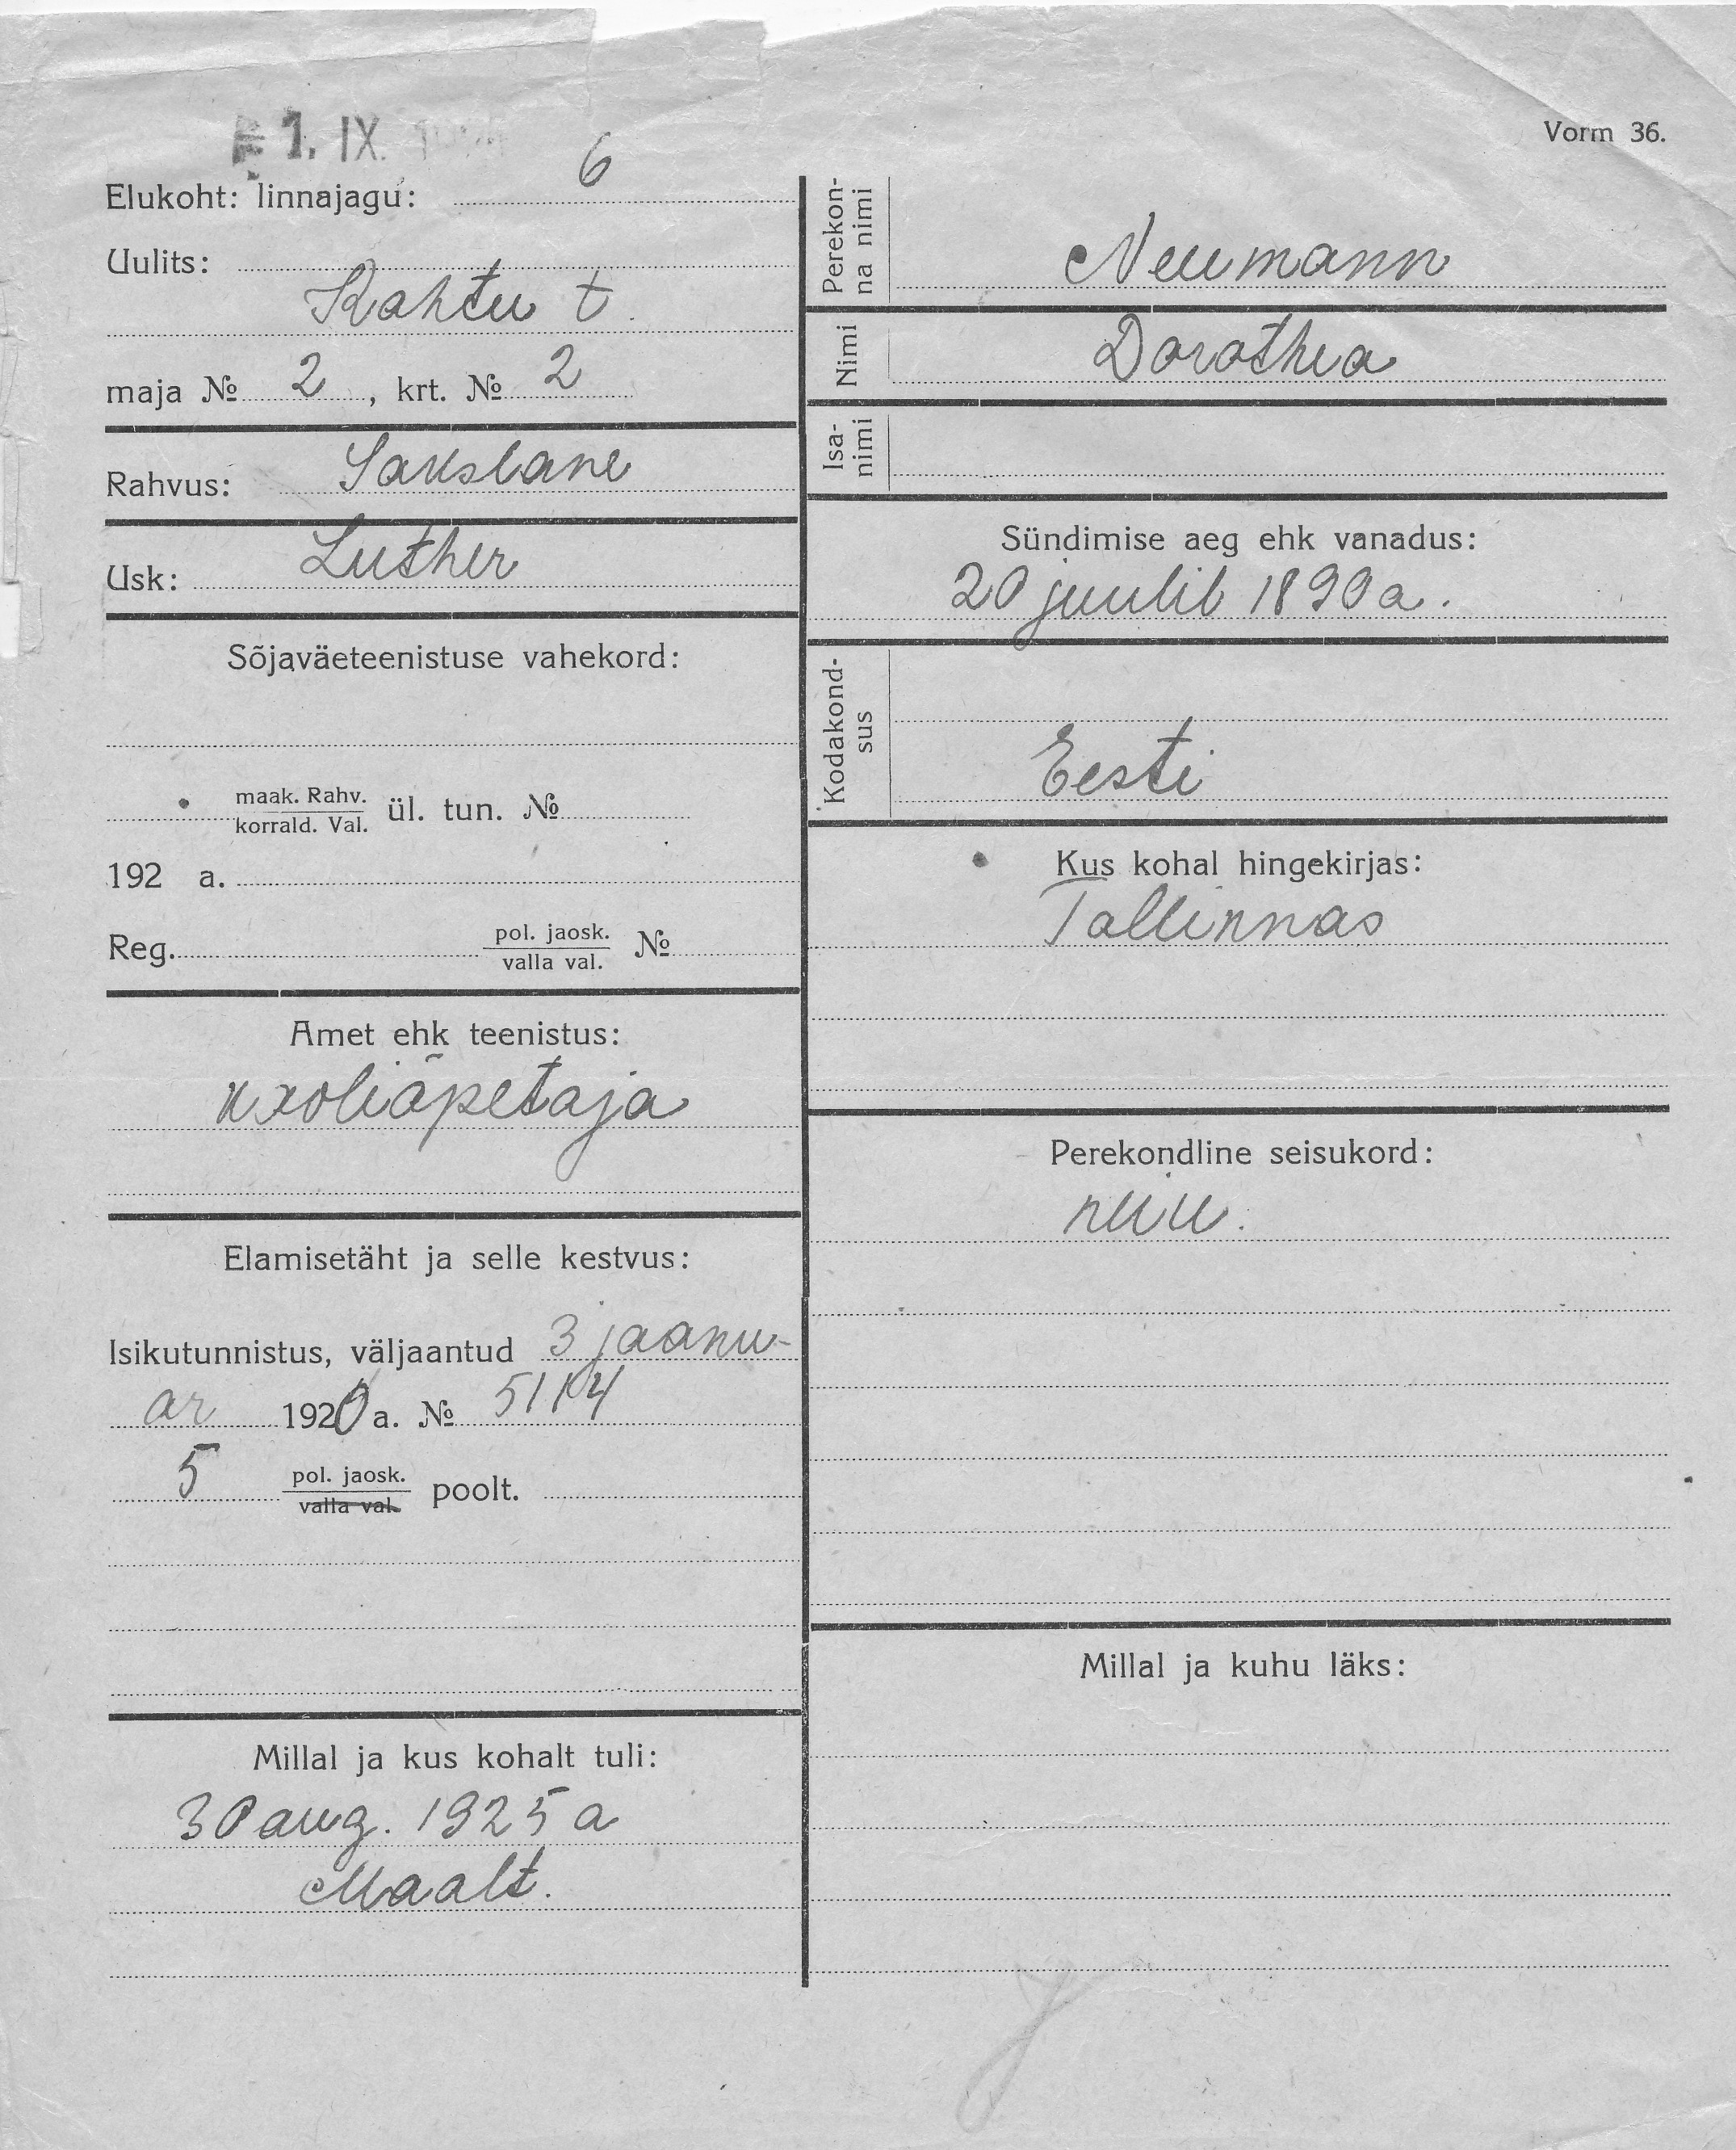 1. IX.
Vorm 36.
Elukoht: linnajagu: 6
Uulits:
Kahtu t.
maja № 2, krt. № 2
Rahvus: Sakslane
Usk: Luther
Sõjaväeteenistuse vahekord:
maak. Rahv.
korrald. Val. ül. tun. №
192 a.
Reg. pol. jaosk.
valla val. №
Amet ehk teenistus:
kooliõpetaja
Elamisetäht ja selle kestvus:
Isikutunnistus, väljaantud 3 jaanu-
ar 1920 a. № 5114
5 pol. jaosk.
valla val. poolt.
Millal ja kus kohalt tuli:
30 aug. 1925 a
Maalt.
Perekon-
na nimi Neumann
Nimi Dorothea
Isa-
nimi
Sündimise aeg ehk vanadus:
20 juulil 1899 a.
Kodakond-
sus Eesti
Kus kohal hingekirjas:
Tallinnas
Perekondline seisukord:
neiu.
Millal ja kuhu läks: